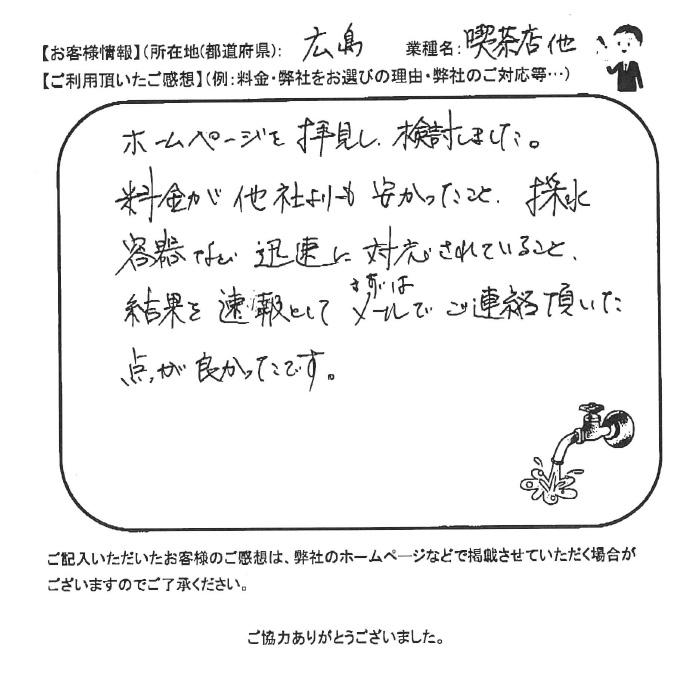 【お客様情報】(所在地(都道府県): 広島 業種名: 喫茶店他
【ご利用頂いたご感想】(例:料金・弊社をお選びの理由・弊社のご対応等…)
ホームページを拝見し、検討しました。
料金が他社よりも安かったこと、採水
容器など迅速に対応されていること、
まずは
結果を速報としてメールでご連絡頂いた
点が良かったです。
ご記入いただいたお客様のご感想は、弊社のホームページなどで掲載させていただく場合が
ございますのでご了承ください。
ご協力ありがとうございました。